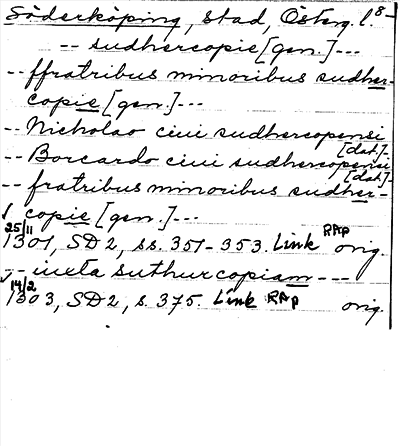 Söderköping, stad, Österg. l. 8-
-- sudhercopie [gen.] ---
-- ffratribus minoribus sudher-
copie [gen.] ---
-- Nicholao ciui sudhercopensi [dat.] -
-- Borcardo ciui sudhercopensi [dat.] -
-- fratribus minoribus sudher-
copie [gen.] ---
25/11 1301, SD 2, ss. 351-353. Link RAp orig.
-- iuxta suthurcopiam ---
14/2 1303, SD 2, s. 375. Link RAp orig.